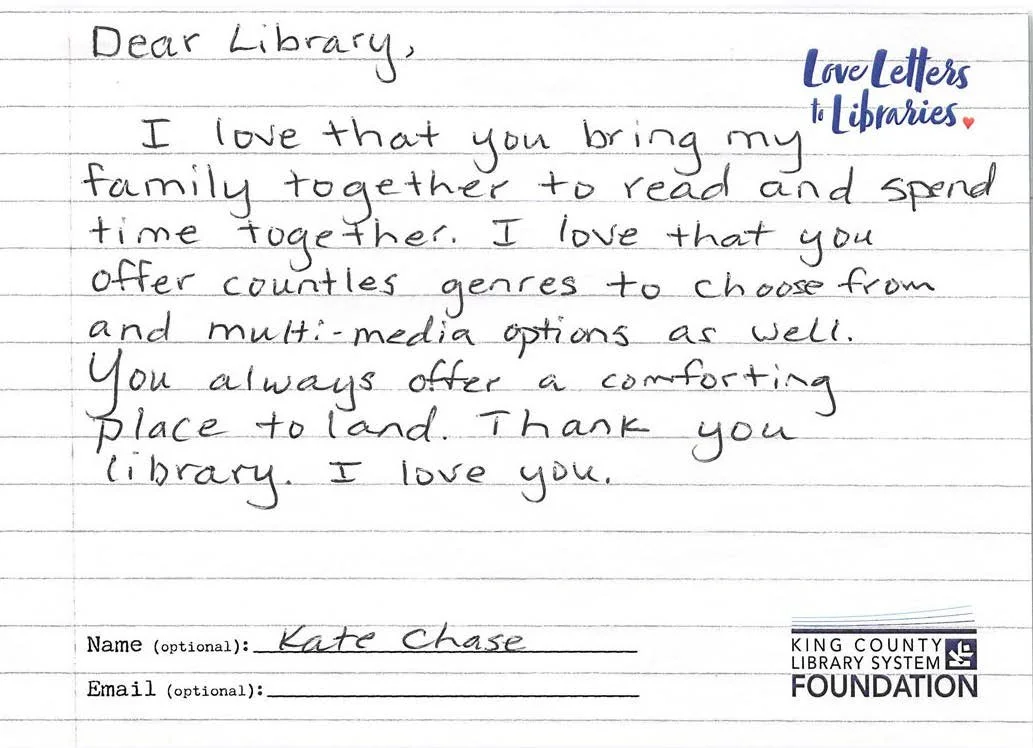 Dear Library,
Love Letters
to Libraries.
I love that you bring my
family together to read and spend
time together. I love that you
offer countles genres to choose from
and multi-media options as well.
You always offer a comforting
place to land. Thank you
library. I love you.
Name (optional): Kate Chase
Email (optional):
KING COUNTY
LIBRARY SYSTEM
FOUNDATION